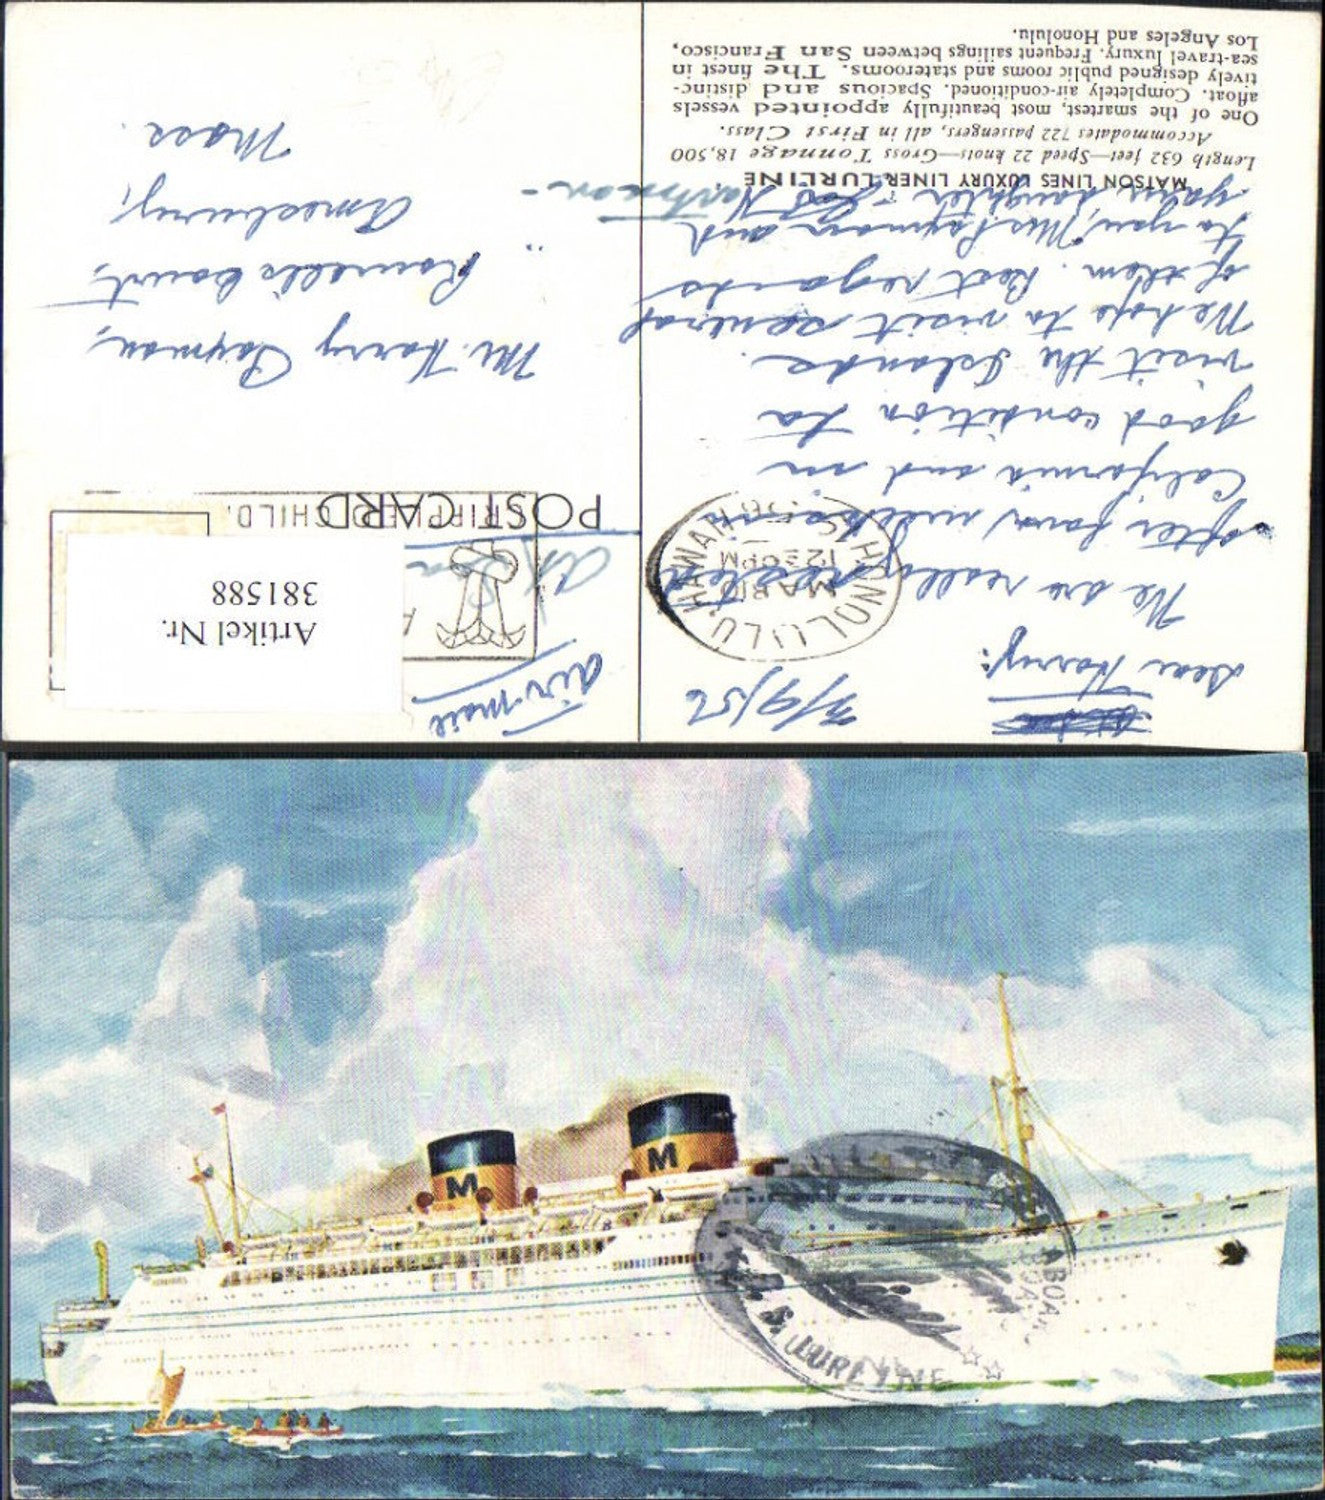 3/9/56
Dear Harry:
We are really rested
after four weeks in
California and in
good condition to
visit the Islands.
We hope to visit several
of them. Best regards
to you, Mrs Payman and
your daughter -
MATSON LINES LUXURY LINER LURLINE
Length 632 feet—Speed 22 knots—Gross Tonnage 18,500
Accommodates 722 passengers, all in First Class.
One of the smartest, most beautifully appointed vessels
afloat. Completely air-conditioned. Spacious and distinc-
tively designed public rooms and staterooms. The finest in
sea-travel luxury. Frequent sailings between San Francisco,
Los Angeles and Honolulu.
HONOLULU, HAWAII
MAR 10
12 30 PM
1956
air-mail
POST CARD
CHILD.
Artikel Nr.
381588
Mr. Harry Payman,
Powell's Court,
Amesbury,
Mass.
M
M
ABOARD
S.S. LURLINE